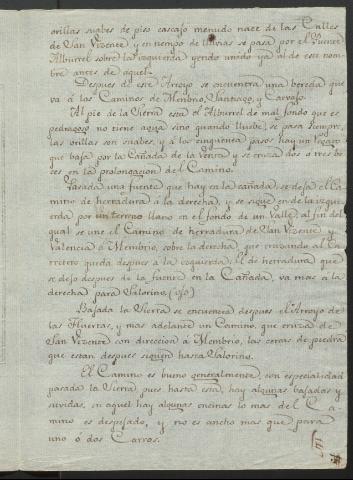 orillas suabes de piso cascajo menudo nace de las Calles
de San Vizente y en tiempo de lluvias se pasa por el Puente
Alburrel sobre la izquierda yendo unido ya al de este nom-
bre antes de aquel.
Despues de este Arroyo se encuentra una bereda que
va á las Caminos de Membrio, Santiago, y Carvajo.
Al pie de la Sierra está el Alburrel de mal fondo que es
pedragoso no tiene agua sino quando lluebe, se pasa siempre,
las orillas son suabes, y á los cinquenta pasos hay un
que baja por la Cañada de la Venta y se cruza dos ó tres be-
ces en la prolongacion del Camino.
Pasada una fuente que hay en la cañada, se deja el Ca-
mino de herradura á la derecha, y se sigue en de la izqui-
erda por un terreno llano en el fondo de un Valle, al fin del
qual se une el Camino de herradura de San Vizente y
Valencia á Membrio, sobre la derecha, que cruzando al Ca-
rretero queda despues á la izquierda; el de herradura que
se dejó despues de la fuente en la Cañada, va mas á la
derecha para Salorino. (ojo)
Bajada la Sierra se encuentra despues el Arroyo de
las Huertas, y mas adelante un Camino, que cruza de
San Vizente con direccion á Membrio, las cercas de piedra
que estan despues siguen hasta Salorino.
El Camino es bueno generalmente, con especialidad
pasada la Sierra, pues hasta esta, hay algunas bajadas y
suvidas, en aquel hay algunas encinas lo mas del Ca-
mino es despejado, y no es ancho mas que para
uno ó dos Carros.